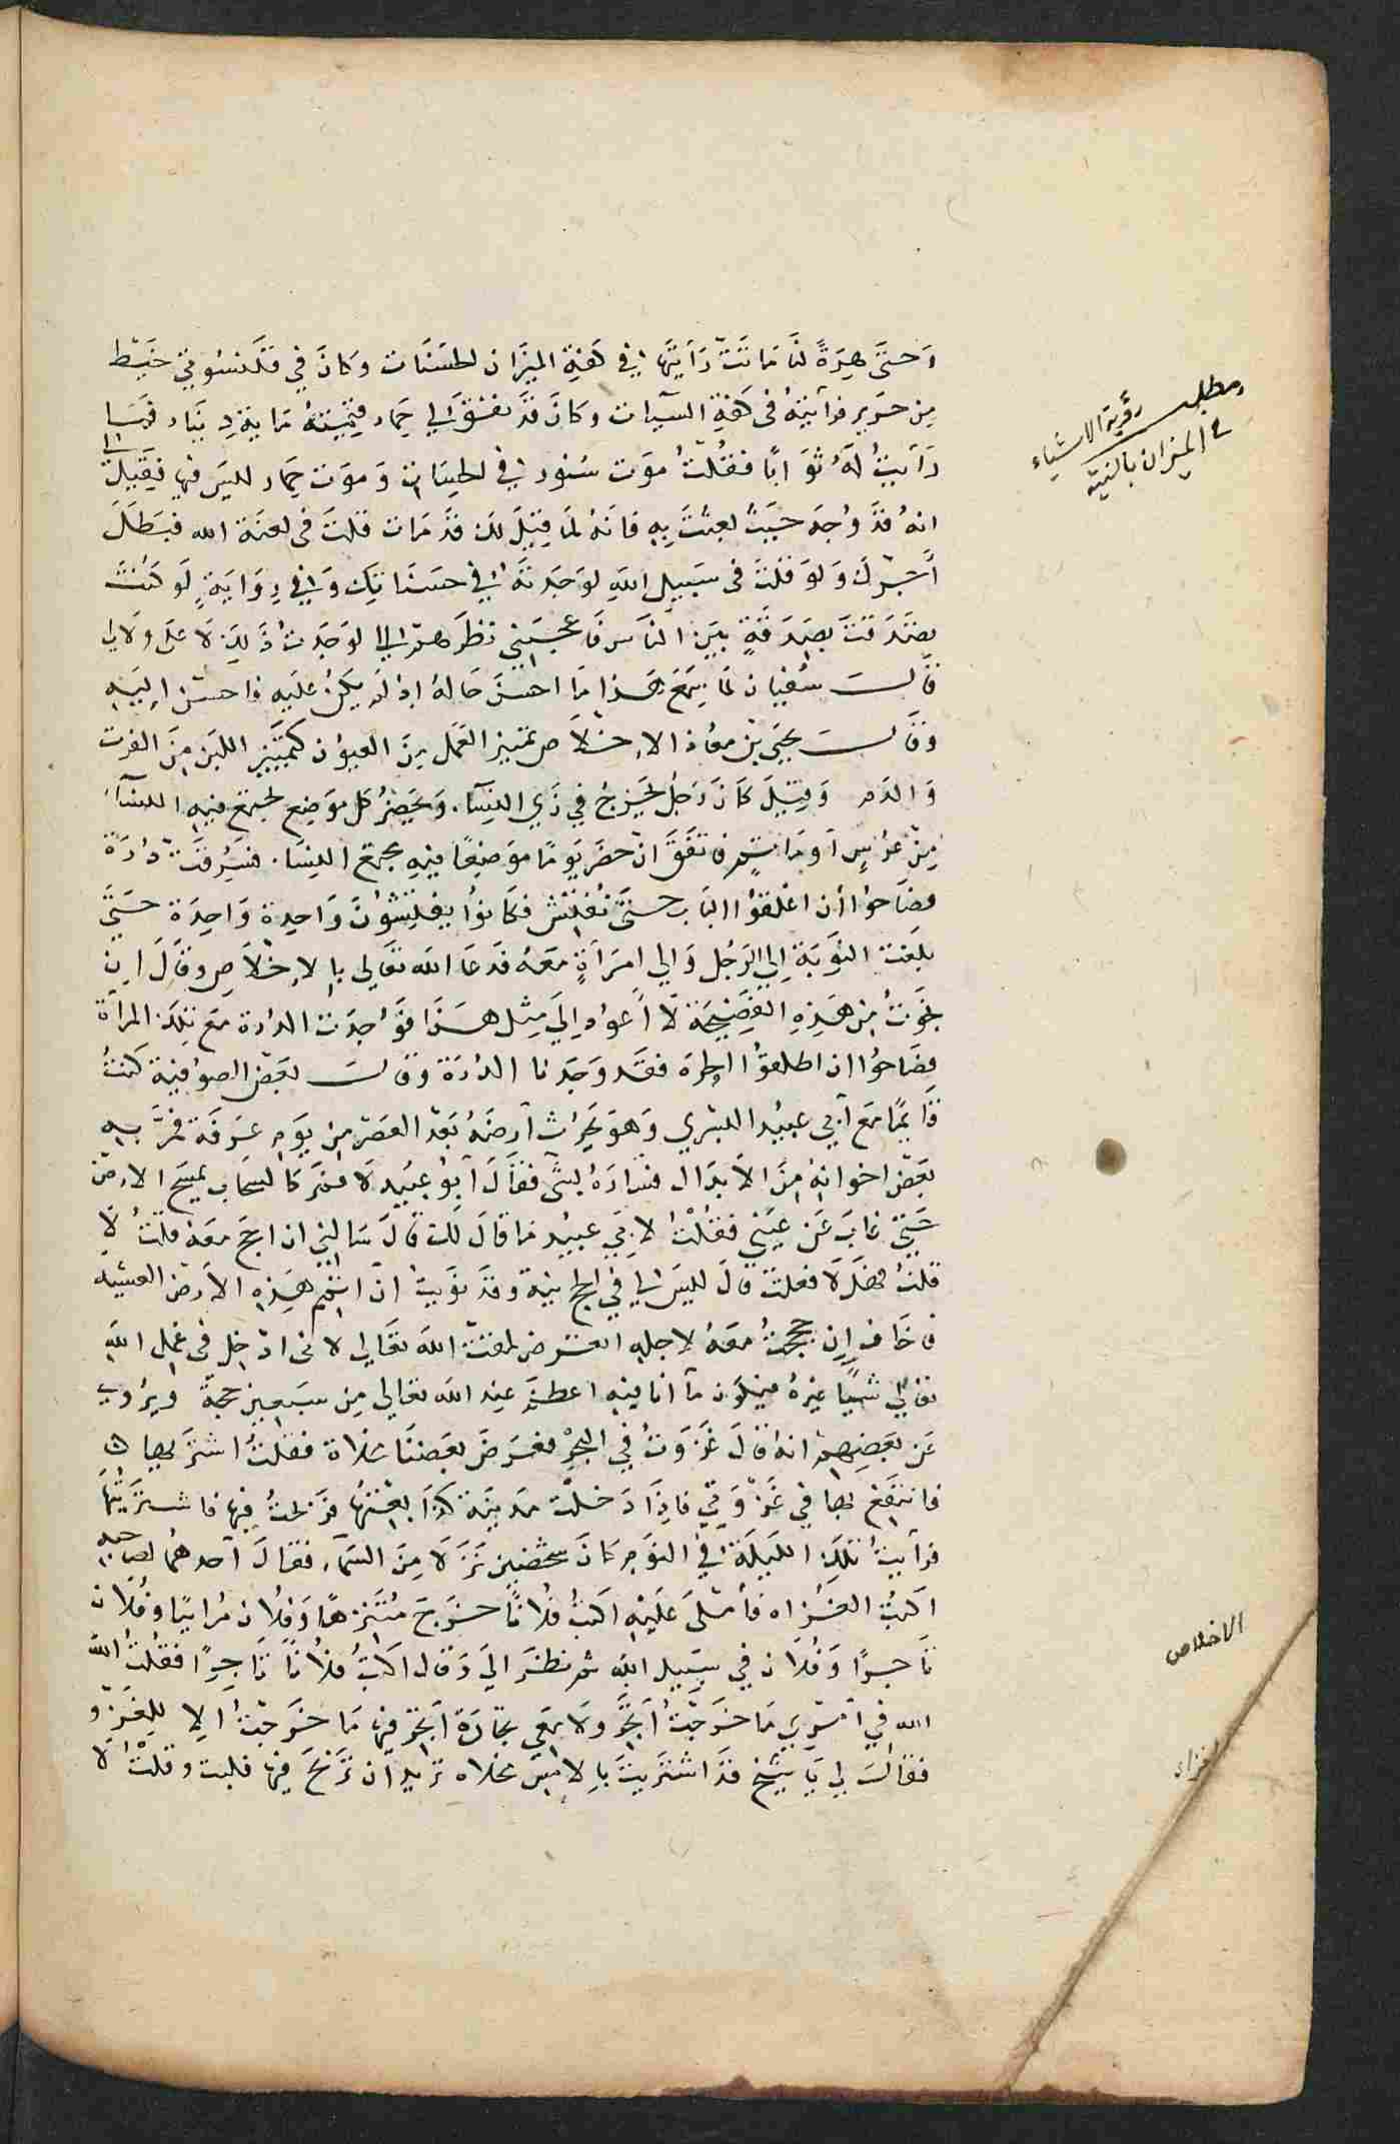 وَحتَّى هِرَةً لنَا مَاتَتْ رَأيتُهَا في كَفةِ الميزَان الحسَنَات وكانَ في قلَنسُوتي خيَط
مِن حَرير فرَأيتهُ في كفةِ السيأت وكانَ قدَ نفَقَ لي حِمار قيمتهُ مَاية دِينَار فمَا
رَأيتُ لهُ ثوَابًا فقلتُ مَوَت سَنور في الحسنات وَمَوت حِمار ليسَ فيها فقيل لي
انهُ قدَ وُجه حيَث بعثتَ بِهِ فانهُ لمَا قيلَ لك قدَ مَات قلتَ في لعنَة الله فبَطَلَ
أجْرك وَلوَ قلتَ في سَبيل اللهِ لوَجَدتهُ في حسَنَاتِكَ وَفي رِوَايَةٍ لَو كنتُ
تصَدقتَ بصَدَقةٍ بيَن النَاس فَاعجَبَني نظرَهمُ الي لوجَدتُ ذَلِكَ لا علَي ولا لي
قالَ سُفيان لما سَمعَ هَذا مَا احسَنَ حَالهُ اذ لم يكن عليَه فاحسَن اليَهِ
وقَالَ يحيَى بنُ معَاذ الاخلاَص تمييز العَمل مِنَ العيُوب كتمييَزِ اللبَن مِنَ الفرث
وَالدَم وَقيلَ كانَ رَجُل يخَرجُ في زَي النِسَآء وَيحَضرُ كل مَوضِع يجتمعُ فيهِ النسَآء
مِن عُرْسٍ أو مَاتم فاتفقَ ان حضَر يَومًا مَوضِعًا فيهِ مجمعَ النِسَاء فسُرِقَت دُرَة
فصَاحُوا أن اغلقوُا البَاب حتىَ نُفتش فكانوُا يفتِشوُنَ وَاحِدة وَاحِدَة حتىَ
بلغَت النوَبَة الي الرَجُل وَالي امرَأةٍ معَهُ فدَعَا الله تعَالي بالاخلاَصِ وقَالَ ان
نجَوتُ مِن هَذِهِ الفضِيحَة لا أعوُد الي مِثل هَذا فوُجدَت الدُرة مَع تِلكَ المرأة
فصَاحُوا ان اطلقوُا الحرة فقَد وَجَدنا الدُرَة وقَالَ بعَض الصوُفية كنتُ
قَايمًا مَع أبي عبيُد التُستري وَهوَ يحَرُث أرضَهُ بعَد العصَر مِن يَوم عَرَفة فمَرَّ بهِ
بعَض اخوانِهِ مِنَ الأبدَال فسَارَهُ بشَئ فقالَ أبوُ عبيَد لاَ فمَرَ كالسحَاب يمسَح الارضَ
حَتى غابَ عَن عَيني فقلتُ لابي عبيُد مَا قالَ لك قالَ سَألني ان احجَ معَه قلتُ لا
قلتُ فهَلا فعلتَ قالَ ليسَ لي في الحج نِية وقدَ نوَيتُ انَ اتمم هَذِهِ الأرضَ العشيه
فاخَاف ان حجَجتُ معَهُ لاجلِهِ اتعَرض لمقت الله تعَالي لاني ادخِل في عمَل الله
تعالي شَيئًا غيرَهُ فيكوُن مَا أنا فيهِ اعظم عِند الله تعَالي مِن سَبعين حجةً ويرُوى
عَن بعَضِهمِ انهُ قالَ غزَوتُ في البَحر فعَرَضَ بعَضنَا مخلاة فقلتُ اشترَيها
فانتفع بها في غَزوَتي فاذَا دَخلتُ مدَينة كذَا بعتهُا فرَبحتُ فيها فاشترَيتُها
فرأيتُ تلكَ الليَلة في النوَم كانَ شخَصين نزَلا مِنَ السَماء فقالَ أحدهُما لصَاحبهِ
اكتبُ الغزُاه فأملىَ عليَه اكتبُ فلاُنًا خرَجَ مُتنزهًا وَفلاُن مُرائيًا وفلاُن
تاجرًا وَفلاُن في سبيل اللهِ ثمَ نظرَ اليَ وَقال اكتبُ فلاُنًا تَاجِرًا فقلتُ اللهَ
الله في أمرِي مَا خرَجتُ أتجر ولا مَعي تجارَة أتجر فيها مَا خرَجتُ الا للغَزو
فقالَ لي يَا شيخ قدَ اشترَيتَ بالامِس مخلاه ترُيد أن ترَبحَ فيها فبكيت وقلتُ لا
مطلب رؤية الاشياء
في الميزان بالنيته
الاخلاص